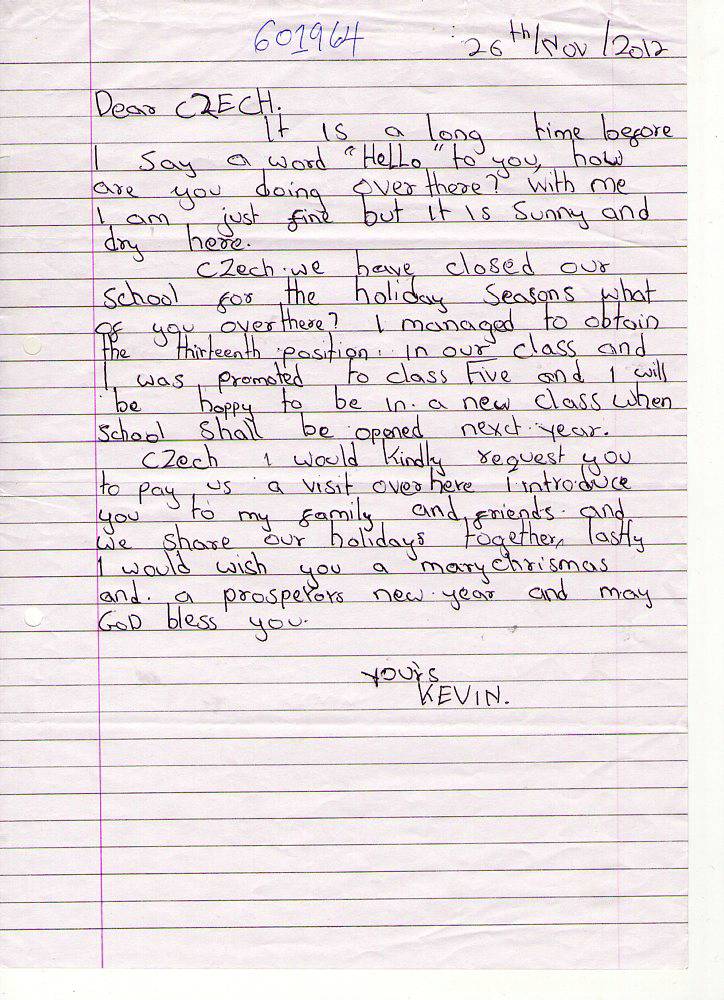 601964
26th/Nov/2012
Dear CZECH.
It is a long time before
I say a word "Hello" to you, how
are you doing over there? With me
I am just fine but it is sunny and
dry here.
CZech. we have closed our
school for the holiday seasons what
of you over there? I managed to obtain
the thirteenth position. in our class and
I was promoted to class Five and I will
be happy to be in a new class when
school shall be opened nexct year.
CZech I would kindly request you
to pay us a visit over here I introduce
you to my family and friends and
we share our holidays together, lastly
I would wish you a mary chrismas
and. a prosperors new year and may
GOD bless you.
yours
KEVIN.